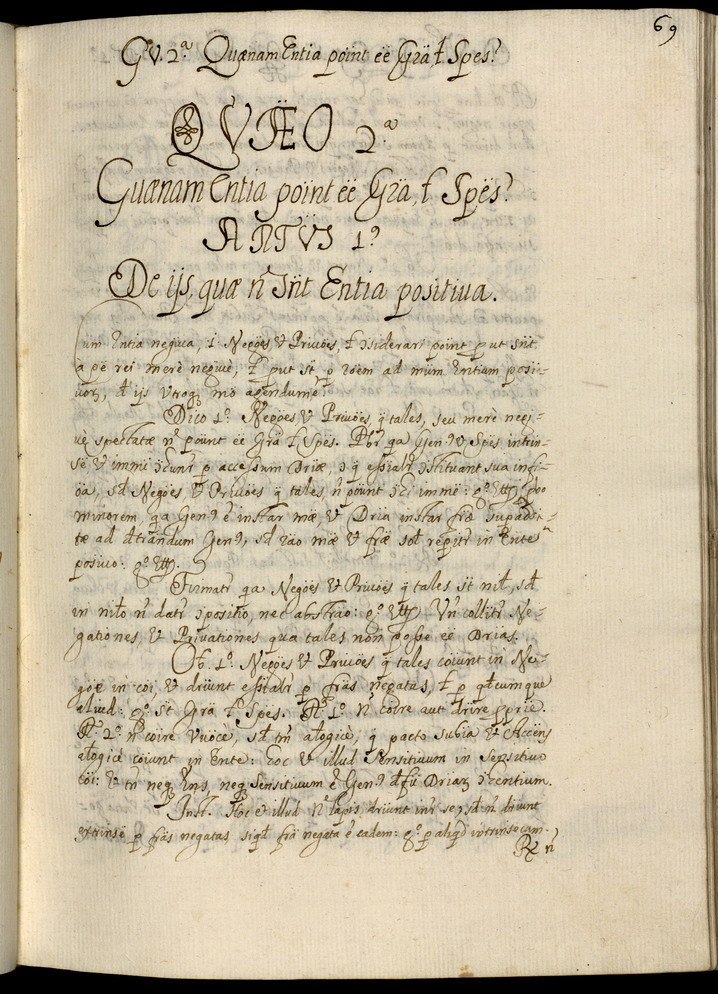 69
QV. 2.ª Quænam Entia point eë Grä, ł Spes?
QVÆO 2.ª
Quænam Entia point eë Grä, ł Spës?
ARTVS 1.º
De ijs, quæ n̄ sn̄t Entia positiua.
Cum Entia negiua, i Negöes & Priuöes, ł ɔsiderari point put sn̄t
a pe rei merè negiuè, ł put st̄ p röem ad mum Entium posi-
uoꝝ, d ijs vtroqꝫ mö agendum ē.
Dico 1.º Negöes & Priuöes, q̄ tales, seu merè negi-
uè spectatæ n̄ point eë Grä ł Spës. Pbr̄ qa Gen9 & Spës intrin-
sè & immë ɔcunr̄ p accessum Driæ, ɔ q̄ essialr̄ ɔstituant sua infi-
öa, sd̄ Negöes, & Priuöes q̄ tales, n̄ point ɔci immë: gº
minorem, qa Gen9 ē instar mæ, & Dria instar fræ supaddi-
tæ ad dtrandum Gen9, sd̄ räo mæ & fræ sol̄ repitr̄ in Ente
posiuo: gº
Firmatr̄ qa Negöes & Priuöes q̄ tales st̄ nil̄, sd̄
in nil̄o n̄ datr̄ ɔpositio, nec absträo: gº Vn̄ collitr̄ Ne-
gationes, & Priuationes qua tales non posse eë Drias.
Ob. 1.º Negöes & Priuöes q̄ tales cöiunt in Ne-
göe in cöi & driunt essialr̄ p fräs negatas, ł p qd̄cumque
aliud: gº st̄ Grä ł Spës. Rº 1.º n̄ cöire aut drire pprië.
Rº 2.º n̄ cöire vuocè, sd̄ tn̄ alogicè, q̄ pacto subia & Accëns
alogicè cöiunt in Ente: hoc & illud sensitiuum in sensitiuo
cöi: & tn̄ neqꝫ Ens, neqꝫ sensitiuum ē Gen9 Driaꝝ ɔtentium.
Inst. Hic & illud n̄ lapis driunt intr̄ se, sd̄ n̄ driunt
extrinsë p fräs negatas siqd̄ frä negata ē eadem: gº p aliqd̄ intrinsecum.
R n̄